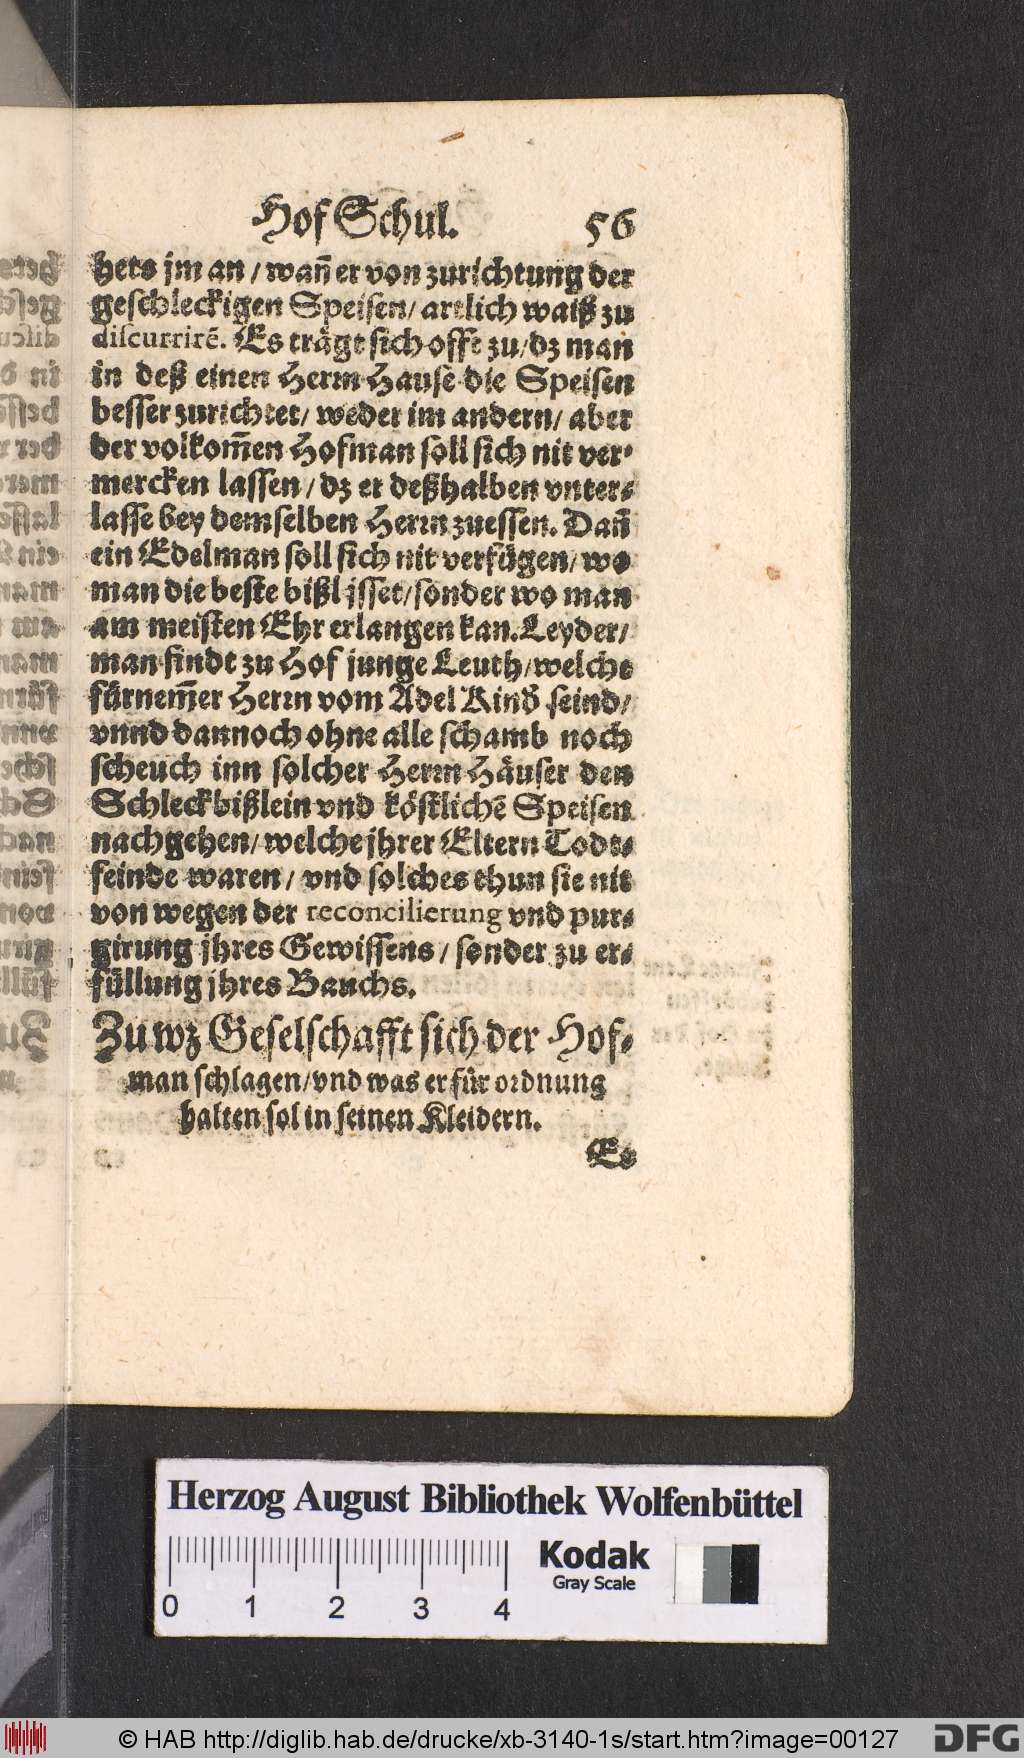 Hof Schul. 56
hets jm an / wañ er von zurichtung der
geschleckigen Speisen / artlich waiß zu
discurrirē. Es trägt sich offt zu / dz man
in deß einen Herrn Hause die Speisen
besser zurichtet / weder im andern / aber
der volkom̃en Hofman soll sich nit ver-
mercken lassen / dz er deßhalben vnter-
lasse bey demselben Herrn zuessen. Dañ
ein Edelman soll sich nit verfügen / wo
man die beste bißl jsset / sonder wo man
am meisten Ehr erlangen kan. Leyder /
man findt zu Hof junge Leuth / welche
fürnem̃er Herrn vom Adel Kind seind /
vnnd dannoch ohne alle schamb noch
scheuch inn solcher Herrn Häuser den
Schleckbißlein vnd köstlichē Speisen
nachgehen / welche jhrer Eltern Todt-
feinde waren / vnd solches thun sie nit
von wegen der reconcilierung vnd pur-
girung jhres Gewissens / sonder zu er-
füllung jhres Bauchs.
Zu wz Geselschafft sich der Hof-
man schlagen / vnd was er für ordnung
halten sol in seinen Kleidern.
Es
Herzog August Bibliothek Wolfenbüttel
Kodak
Gray Scale
0 1 2 3 4
© HAB http://diglib.hab.de/drucke/xb-3140-1s/start.htm?image=00127
DFG